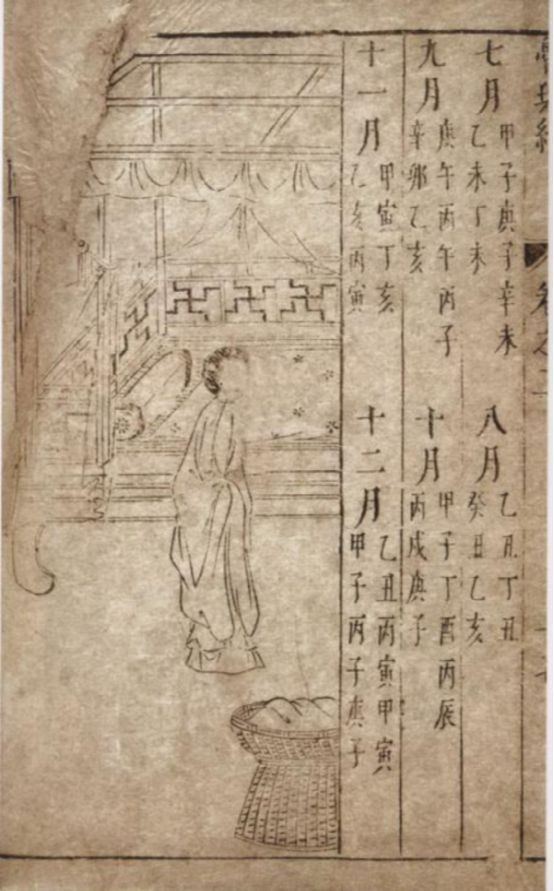 卷之二
七月 甲子庚子辛未
乙未丁未
八月 乙丑丁丑
癸丑乙亥
九月 庚午丙午丙子
辛卯乙亥
十月 甲子丁酉丙辰
丙戌庚子
十一月 甲寅丁亥
乙亥丙寅
十二月 乙丑丙寅甲寅
甲子丙子庚子